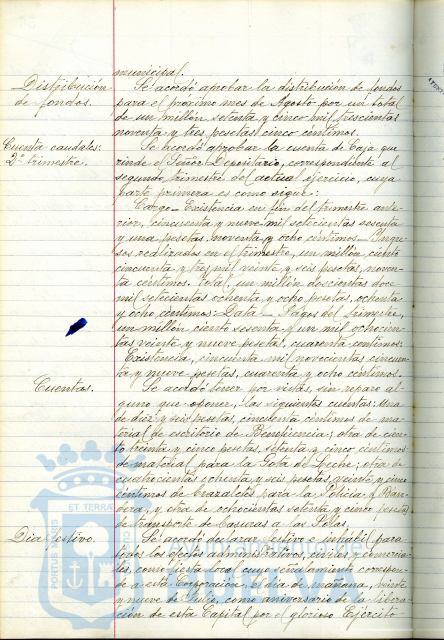 municipal.
Distribución
de fondos.
Se acordó aprobar la distribución de fondos
para el próximo mes de Agosto por un total
de un millón setenta y cinco mil trescientas
noventa y tres pesetas cinco céntimos.
Cuenta caudales:
2º trimestre.
Se acordó aprobar la cuenta de Caja que
rinde el Señor Depositario, correspondiente al
segundo trimestre del actual ejercicio, cuya
parte primera es como sigue:
Cargo - Existencia en fin del trimestre ante-
rior, cincuenta y nueve mil setecientas sesenta
y una pesetas, noventa y ocho céntimos - Ingre-
sos realizados en el trimestre, un millón ciento
cincuenta y tres mil veinte y seis pesetas, noven-
ta céntimos. Total, un millón doscientas doce
mil setecientas ochenta y ocho pesetas, ochenta
y ocho céntimos: Data - Pagos del trimestre,
un millón ciento sesenta y un mil ochocien-
tas veinte y nueve pesetas, cuarenta céntimos:
Existencia, cincuenta mil novecientas cincuen-
ta y nueve pesetas, cuarenta y ocho céntimos.
Cuentas.
Se acordó tener por vistas, sin reparo al-
guno que oponer, las siguientes cuentas: Una
de diez y seis pesetas, cincuenta céntimos de ma-
terial de escritorio de Beneficencia; otra de cien-
to treinta y cinco pesetas, setenta y cinco céntimos
de material para la Gota de Leche; otra de
cuatrocientas ochenta y seis pesetas, veinte y cinco
céntimos de brazaletes para la Policía y Ban-
dera, y otra de ochocientas setenta y cinco pesetas
de transporte de basuras a las Islas.
Día festivo.
Se acordó declarar festivo e inhábil para
todos los efectos administrativos, civiles y comercia-
les, como fiesta local cuyo señalamiento correspon-
de a esta Corporación el día de mañana, veinte
y nueve de Julio, como aniversario de la libera-
ción de esta Capital por el glorioso Ejército
ET TERRA
PORTUS